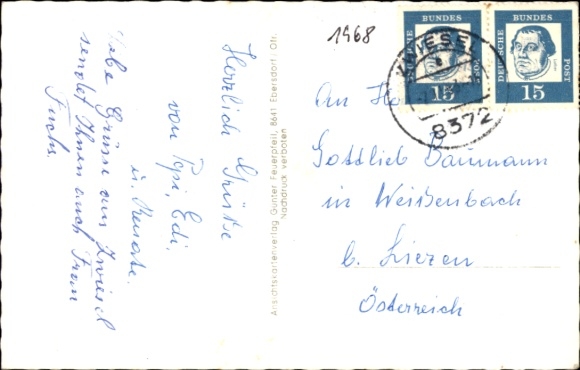 1968
DEUTSCHE BUNDES POST
15
DEUTSCHE BUNDES POST
15
ZWIESEL
8372
An
Gottlieb Baumann
in Weißenbach
b. Liezen
Österreich
Ansichtskartenverlag Günter Feuerpfeil, 8641 Ebersdorf/Ofr.
Nachdruck verboten
Herzlich Grüße
von Edi,
u. Renate.
Liebe Grüsse aus Zwiesel
sendet Ihnen auch Frau
Fuchs